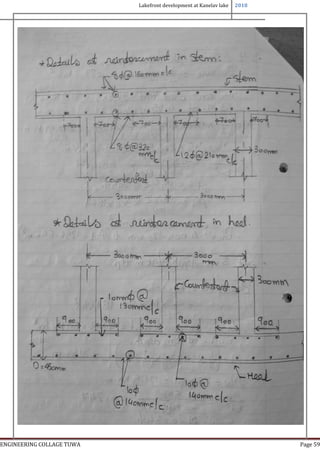 Lakefront development at Kanelav lake 2018
* Details of reinforcement in stem:
8ϕ@160mm c/c
Stem
700 700 700 700 700
300mm
8ϕ@320 mm c/c
12ϕ@210mm c/c
Counterfort
3000mm 3000mm
* Details of reinforcement in heel.
3000mm 3000 mm
Counterfort
300mm
10mmϕ@ 130mm c/c
900 900 900 900 900 900
D=450mm
Heel
10ϕ @140mm c/c
10ϕ@ 140mm c/c
ENGINEERING COLLAGE TUWA Page 59